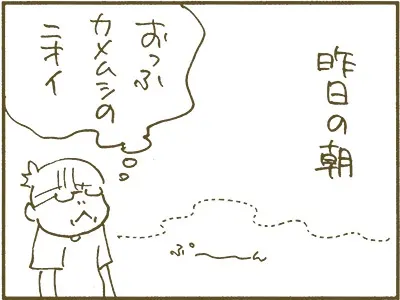 昨日の朝
おっふ
カメムシの
ニオイ
ぷ〜〜ん